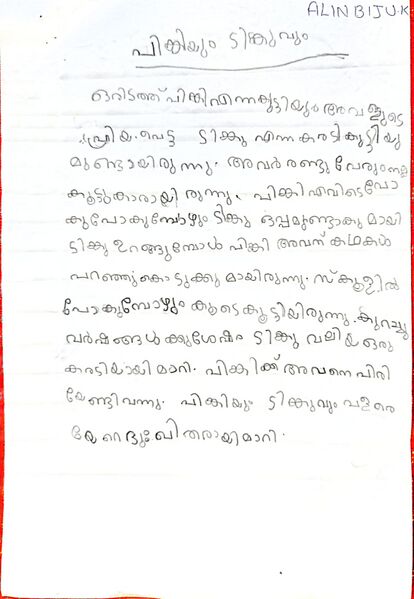 ALIN BIJU.K
പിങ്കിയും ടിങ്കുവും
ഒരിടത്ത് പിങ്കി എന്ന കുട്ടിയും അവളുടെ
പ്രിയപെട്ട ടിക്കു എന്ന കരടികുട്ടിയു
മുണ്ടായിരുന്നു. അവർ രണ്ടു പേരും നല്ല
കൂട്ടുകാരായിരുന്നു. പിങ്കി എവിടെപോ
കുപോകുമ്പോഴും ടിങ്കു ഒപ്പമുണ്ടാകുമായി
ടിങ്കു ഉറങ്ങുമ്പോൾ പിങ്കി അവന് കഥകൾ
പറഞ്ഞുകൊടുക്കുമായിരുന്നു. സ്കൂളിൽ
പോകുമ്പോഴും കൂടെകൂട്ടിയിരുന്നു. കുറച്ചു
വർഷങ്ങൾക്കുശേഷം ടിങ്കു വലിയ ഒരു
കരടിയായി മാറി. പിങ്കിക്ക് അവനെ പിരി
യേണ്ടിവന്നു. പിങ്കിയും ടിങ്കുവും വളരെ
യേറെ ദുഃഖിതരായി മാറി.